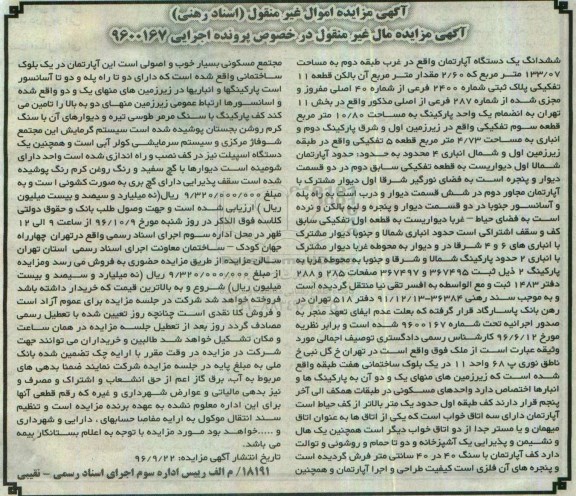 آگهی مزایده اموال غیر منقول (اسناد رهنی)
آگهی مزایده مال غیر منقول در خصوص پرونده اجرایی ۹۶۰۰۱۶۷
ششدانگ یک دستگاه آپارتمان واقع در غرب طبقه دوم به مساحت
۱۳۳/۰۷ متر مربع که ۲/۶۰ مقدار متر مربع آن بالکن قطعه ۱۱
تفکیکی پلاک ثبتی شماره ۲۴۰۰ فرعی از شماره ۴۰ اصلی مفروز و
مجزی شده از شماره ۲۸۷ فرعی از اصلی مذکور واقع در بخش ۱۱
تهران به انضمام یک واحد پارکینگ به مساحت ۱۰/۸۰ متر مربع
قطعه سوم تفکیکی واقع در زیرزمین اول و شرق پارکینگ دوم و
انباری به مساحت ۴/۷۳ متر مربع قطعه ۵ تفکیکی واقع در طبقه
زیرزمین اول و شمال انباری ۴ محدود به حدود: حدود آپارتمان
شمالا اول دیواریست به قطعه تفکیکی سابق دوم در دو قسمت
دیوار و پنجره است به فضای نورگیر شرقا اول دیوار مشترک با
آپارتمان مجاور دوم در شش قسمت دیوار و درب است به راه پله
و آسانسور جنوبا در دو قسمت دیوار و پنجره و لبه بالکن و نرده
است به فضای حیاط – غربا دیواریست به قطعه اول تفکیکی سابق
کف و سقف اشتراکی است حدود انباری شمالا و جنوبا دیوار مشترک
با انباری های ۶ و ۴ شرقا در و دیوار به محوطه غربا دیوار مشترک
با انباری ۲ حدود پارکینگ شمالا و شرقا و جنوبا به محوطه غربا به
پارکینگ ۲ ذیل ثبت ۳۶۷۴۹۵ و ۳۶۷۴۹۷ صفحات ۲۸۵ و ۲۸۸
دفتر ۱۴۸۳ ثبت و مع الواسطه به افسر تقی نیا منتقل گردیده است
و به موجب سند رهنی ۳۶۳۸۴-۹۱/۱۲/۱۳ دفتر ۵۱۸ تهران در
رهن بانک پاسارگاد قرار گرفته که بعلت عدم ایفای تعهد منجر به
صدور اجرائیه تحت شماره ۹۶۰۰۱۶۷ شده است و برابر نظریه
مورخ ۹۶/۶/۱۲ کارشناس رسمی دادگستری توصیف اجمالی مورد
وثیقه عبارت است از ملک فوق واقع است در تهران خ گل نبی خ
ناطق نوری پ ۶۸ واحد ۱۱ در یک بلوک ساختمانی هفت طبقه واقع
شده است که زیرزمین های منهای یک و دو آن به پارکینگ ها و
انبارها اختصاص دارد واحدهای مسکونی در طبقات همکف الی آخر
پنجم قرار دارند کف طبقه اول حدود یک متر بالاتر از کف حیاط است
آپارتمان دارای سه اتاق خواب است که یکی از اتاق ها به عنوان اتاق
میهمان و یا مستر جدا از دو اتاق خواب دیگر است همچنین یک هال
و نشیمن و پذیرایی یک آشپزخانه و دو تا حمام و روشوئی و توالت
دارد کف آپارتمان با سنگ ۴۰ در ۴۰ سانتی متر فرش گردیده است
و پنجره های آن فلزی است کیفیت طراحی و اجرا آپارتمان و همچنین
مجتمع مسکونی بسیار خوب و اصولی است این آپارتمان در یک بلوک
ساختمانی واقع شده است که دارای دو تا راه پله و دو تا آسانسور
است پارکینگها و انباریها در زیرزمین های منهای یک و دو واقع شده
و آسانسورها ارتباط عمومی زیرزمین منهای دو به بالا را تامین می
کند کف پارکینگ با سنگ مرمر طوسی تیره و دیوارهای آن با سنگ
کرم روشن بجستان پوشیده شده است سیستم گرمایش این مجتمع
شوفاژ مرکزی و سیستم سرمایشی کولر آبی است و همچنین یک
دستگاه اسپیلت نیز در کف نصب و راه اندازی شده است واحد دارای
شومینه است دیوارها با گچ سفید و رنگ روغن کرم رنگ پوشیده
شده است سقف پذیرایی دارای گچ بری به صورت کشوئی است و به
مبلغ ۹/۳۲۰/۰۰۰/۰۰۰ ریال(نه میلیارد و سیصد و بیست میلیون
ریال) ارزیابی شده است و جهت وصول طلب بانک و حقوق دولتی
کلاسه فوق الذکر در روز شنبه مورخ ۹۶/۱۰/۹ از ساعت ۹ الی ۱۲
ظهر در محل اداره سوم اجرای اسناد رسمی واقع در تهران چهارراه
جهان کودک – ساختمان معاونت اجرای اسناد رسمی استان تهران
سالن مزایده از طریق مزایده حضوری به فروش می رسد ومزایده
از مبلغ ۹/۳۲۰/۰۰۰/۰۰۰ ریال (نه میلیارد و سیصد و بیست
میلیون ریال) شروع و به بالاترین قیمت که خریدار داشته باشد
فروخته خواهد شد شرکت در جلسه مزایده برای عموم آزاد است
و فروش کلا نقدی است چنانچه روز تعیین شده با تعطیل رسمی
مصادف گردد روز بعد از تعطیل جلسه مزایده در همان ساعت
و مکان تشکیل خواهد شد طالبین و خریداران می توانند جهت
شرکت در مزایده در وقت مقرر با ارایه چک تضمین شده بانک
ملی به مبلغ پایه در جلسه مزایده شرکت نمایند ضمنا بدهی های
مربوط به آب، برق گاز اعم از حق انشعاب و اشتراک و مصرف و
نیز بدهی مالیاتی و عوارض شهرداری و غیره که رقم قطعی آنها
برای این اداره معلوم نشده به عهده برنده مزایده است و تنظیم
سند انتقال موکول به ارایه مفاصا حسابهای ، دارایی و شهرداری
و .....خواهد بود مورد مزایده با توجه به اعلام بستانکار بیمه
می باشد.
تاریخ انتشار آگهی مزایده: ۹۶/۹/۲۲
۱۸۱۹۱/ م الف رییس اداره سوم اجرای اسناد رسمی – نقیبی